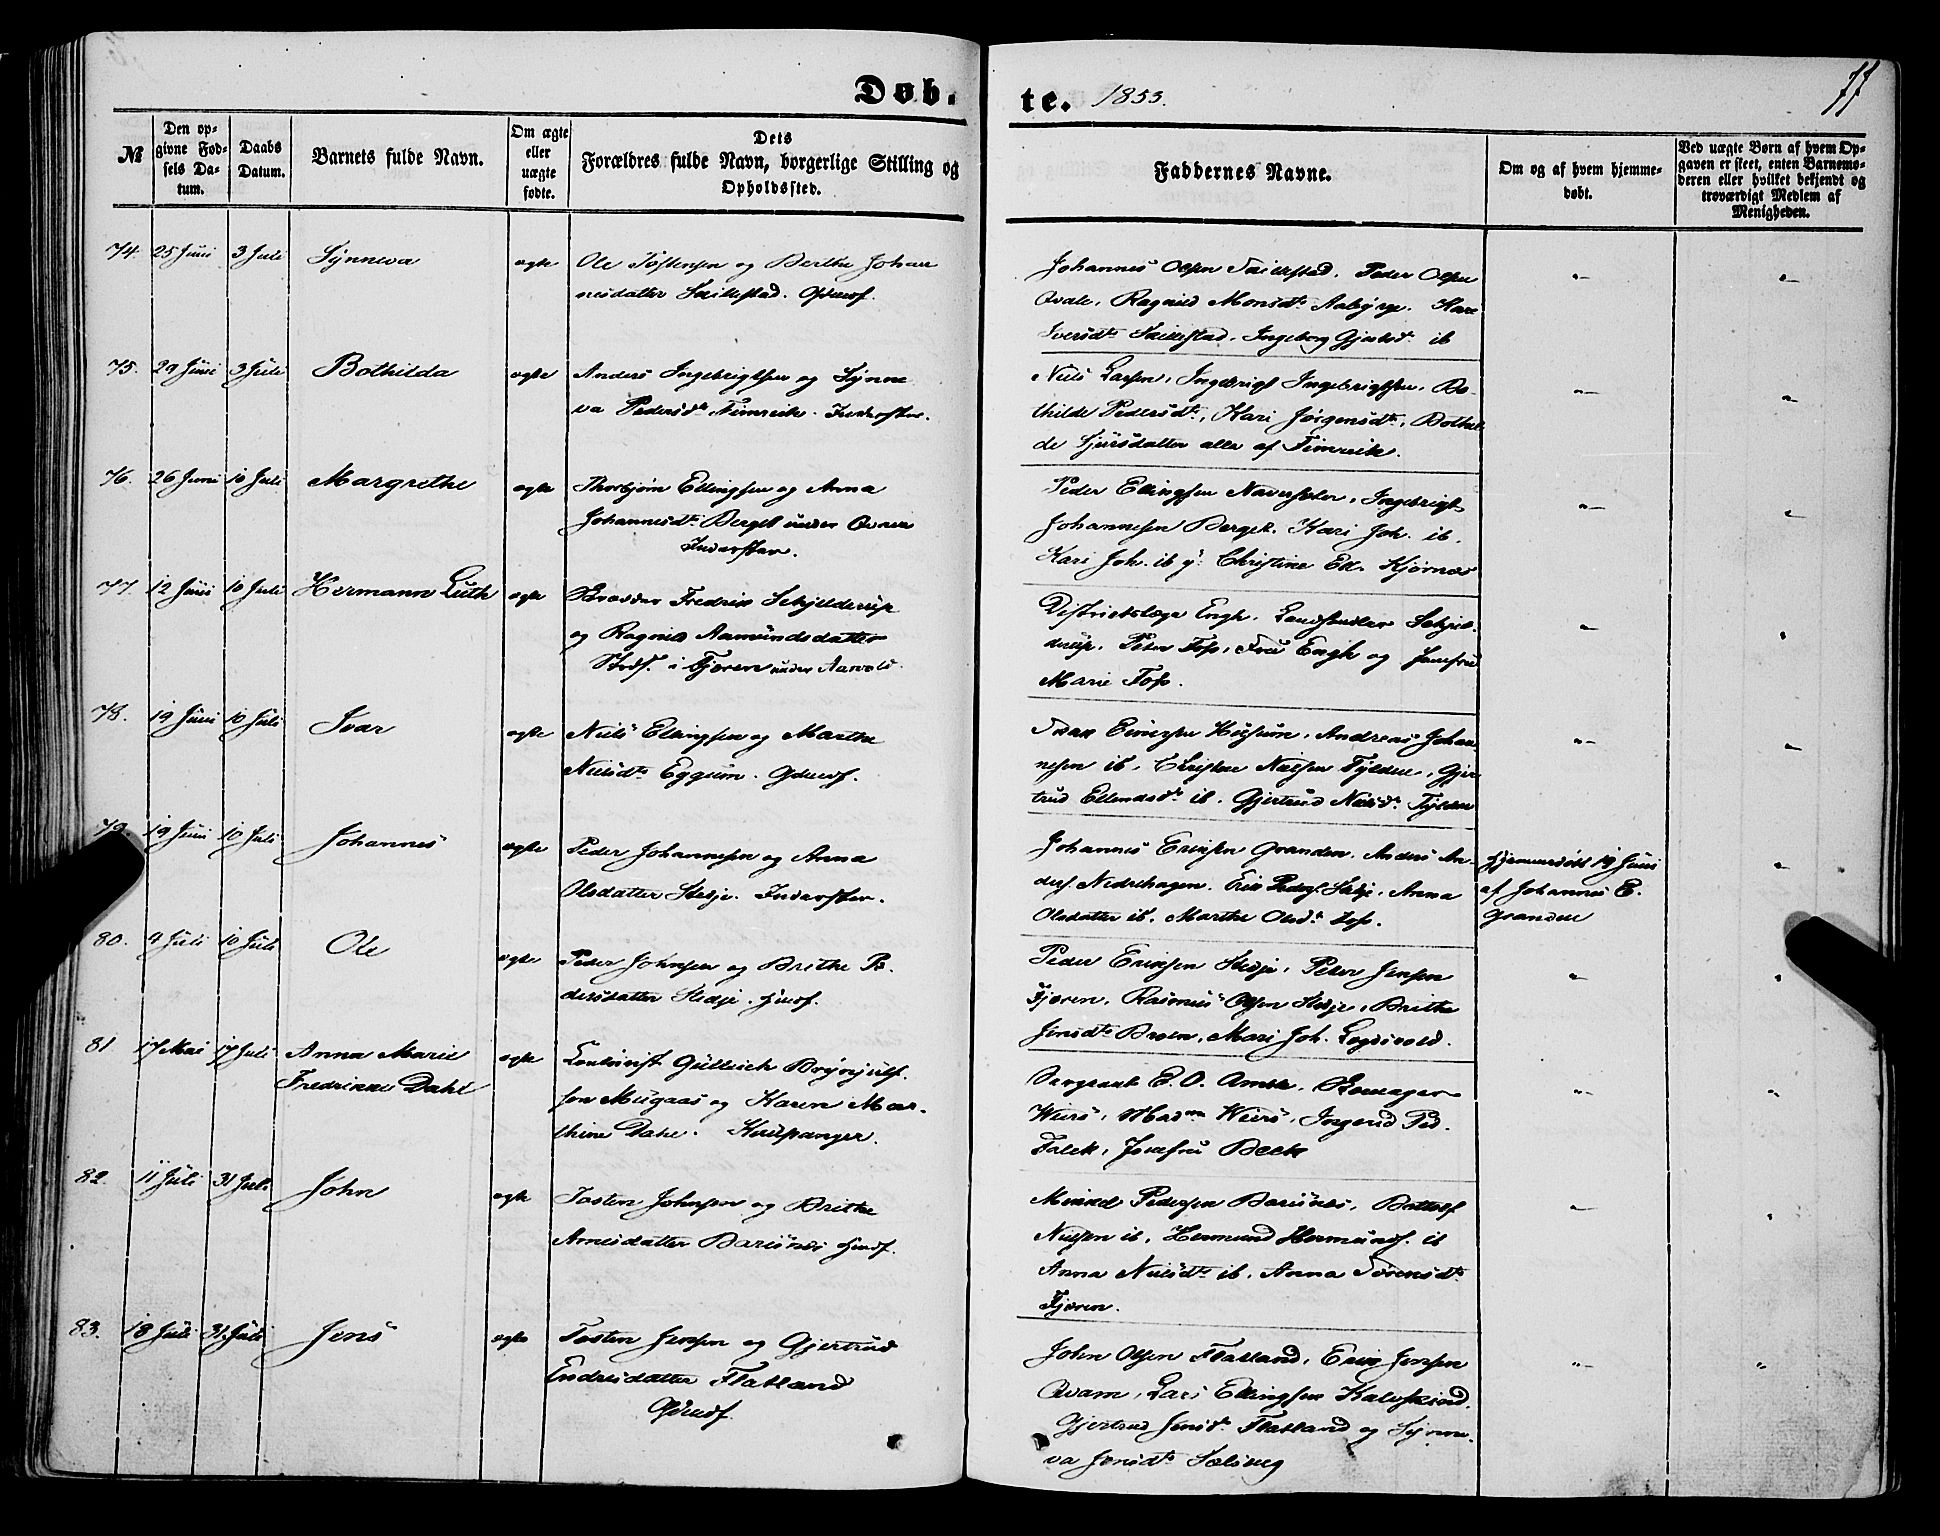 Døb-
te. 1853.
77
№
Den op-
givne Fød-
sels Da-
tum.
Daabs
Datum.
Barnets fulde Navn.
Om ægte
eller
uægte
fødte.
Dets
Forældres fulde Navn, borgerlige Stilling og
Opholdssted.
Faddernes Navne.
Om og af hvem hjemme-
døbt.
Ved uægte Børn af hvem Op-
gaven er skeet, enten Barnemo-
deren eller hvilket bekjendt og
troværdigt Medlem af
Menigheden.
74. 25 Juni 3 Juli Synneva ægte Ole Tostensen og Berthe Johan
nesdatter Skillestad.
Johannes Olsen Skillestad. Peder Olsen
Qvale, Ragnild Monsdt. Aabyrge. Kari
Iversdt. Skillestad, Ingeborg ib
75. 29 Juni 3 Juli Bothilda ægte Anders Ingebrigtsen og Synne
va Pedersdt. Nimreik. Inderster.
Niels Larsen, Ingebrigt Ingebrigtsen, Bo-
thilde Pedersdt., Kari Jørgensdt., Bothil
de Sjursdatter alle af Timreik.
76. 26 Juni 10 Juli Margrethe ægte Thorbjørn Ellingsen og Anna
Johannesdt. Berget under Qvam
Inderster.
Peder Ellingsen Navarsete, Ingebrigt
Johannesen Berget. Kari Joh. ib.
Kari Joh. ib y. Christine Ell. Kjørnæs
77. 12 Juni 10 Juli Hermann Luth ægte Fredrik Schjelderup
og Ragnild Aamundsdatter
i Fjæren under Aarvold.
Districtslæge Engh. Landhandler Schjel-
derup. Peter Foss, Fru Engh og Jomfru
Marie Foss.
78. 19 Juni 10 Juli Ivar ægte Niels Ellingsen og Marthe
Nielsdt. Eggum.
Ivar Husum, Andreas Johan
nesen ib, Christen Nielsen Fylden, Gjer
trud Ellendsdt. ib. Gjertrud Nielsdt. Fylden
79. 19 Juni 10 Juli Johannes ægte Peder Johannesen og Anna
Olsdatter Stedje. Inderster.
Johannes Eriksen Granden. Anders An-
ders. Nedrehagen. Erik Peders. Stedje, Anna
Olsdatter ib. Marthe Olsdt. Foss.
Hjemmedøbt 19 Juni
af Johannes E.
Granden
80. 9 Juli 10 Juli Ole ægte Peder Johnsen og Brithe Pe
dersdatter Stedje.
Peder Eriksen Stedje, Peter Jensen
Fjæren, Rasmus Olsen Stedje, Brithe
Jensdt. Broen, Mari Joh. Loftesvold.
81 17 Mai 17 Juli Anna Marie
Fredrikke Dahl ægte Gullrich Brynjulf-
sen Mugaas og Karen Mar-
thine Dahl. Kaupanger.
Sergeant E. O. Amble.
Wiers, Madm Wiers, Ingerid Ped.
Falck, Jomfru Beck
82. 11 Juli 31 Juli John ægte Tosten Johnsen og Brithe
Arnesdatter Barsnes
Mikkel Pedersen Barsnes, Bottolf
Nielsen ib, Hermund Hermunds. ib
Anna Nielsdt. ib, Anna Sørensdt.
Fjæren.
83. 18 Juli 31 Juli Jens ægte Tosten Jensen og Gjertrud
Endresdatter Flatland
John Olsen Flatland, Erik Jensen
Qvam, Lars Ellingsen Kalvskind.
Gjertrud Jensdt. Flatland og Synne-
va Jensdt. Sælseng